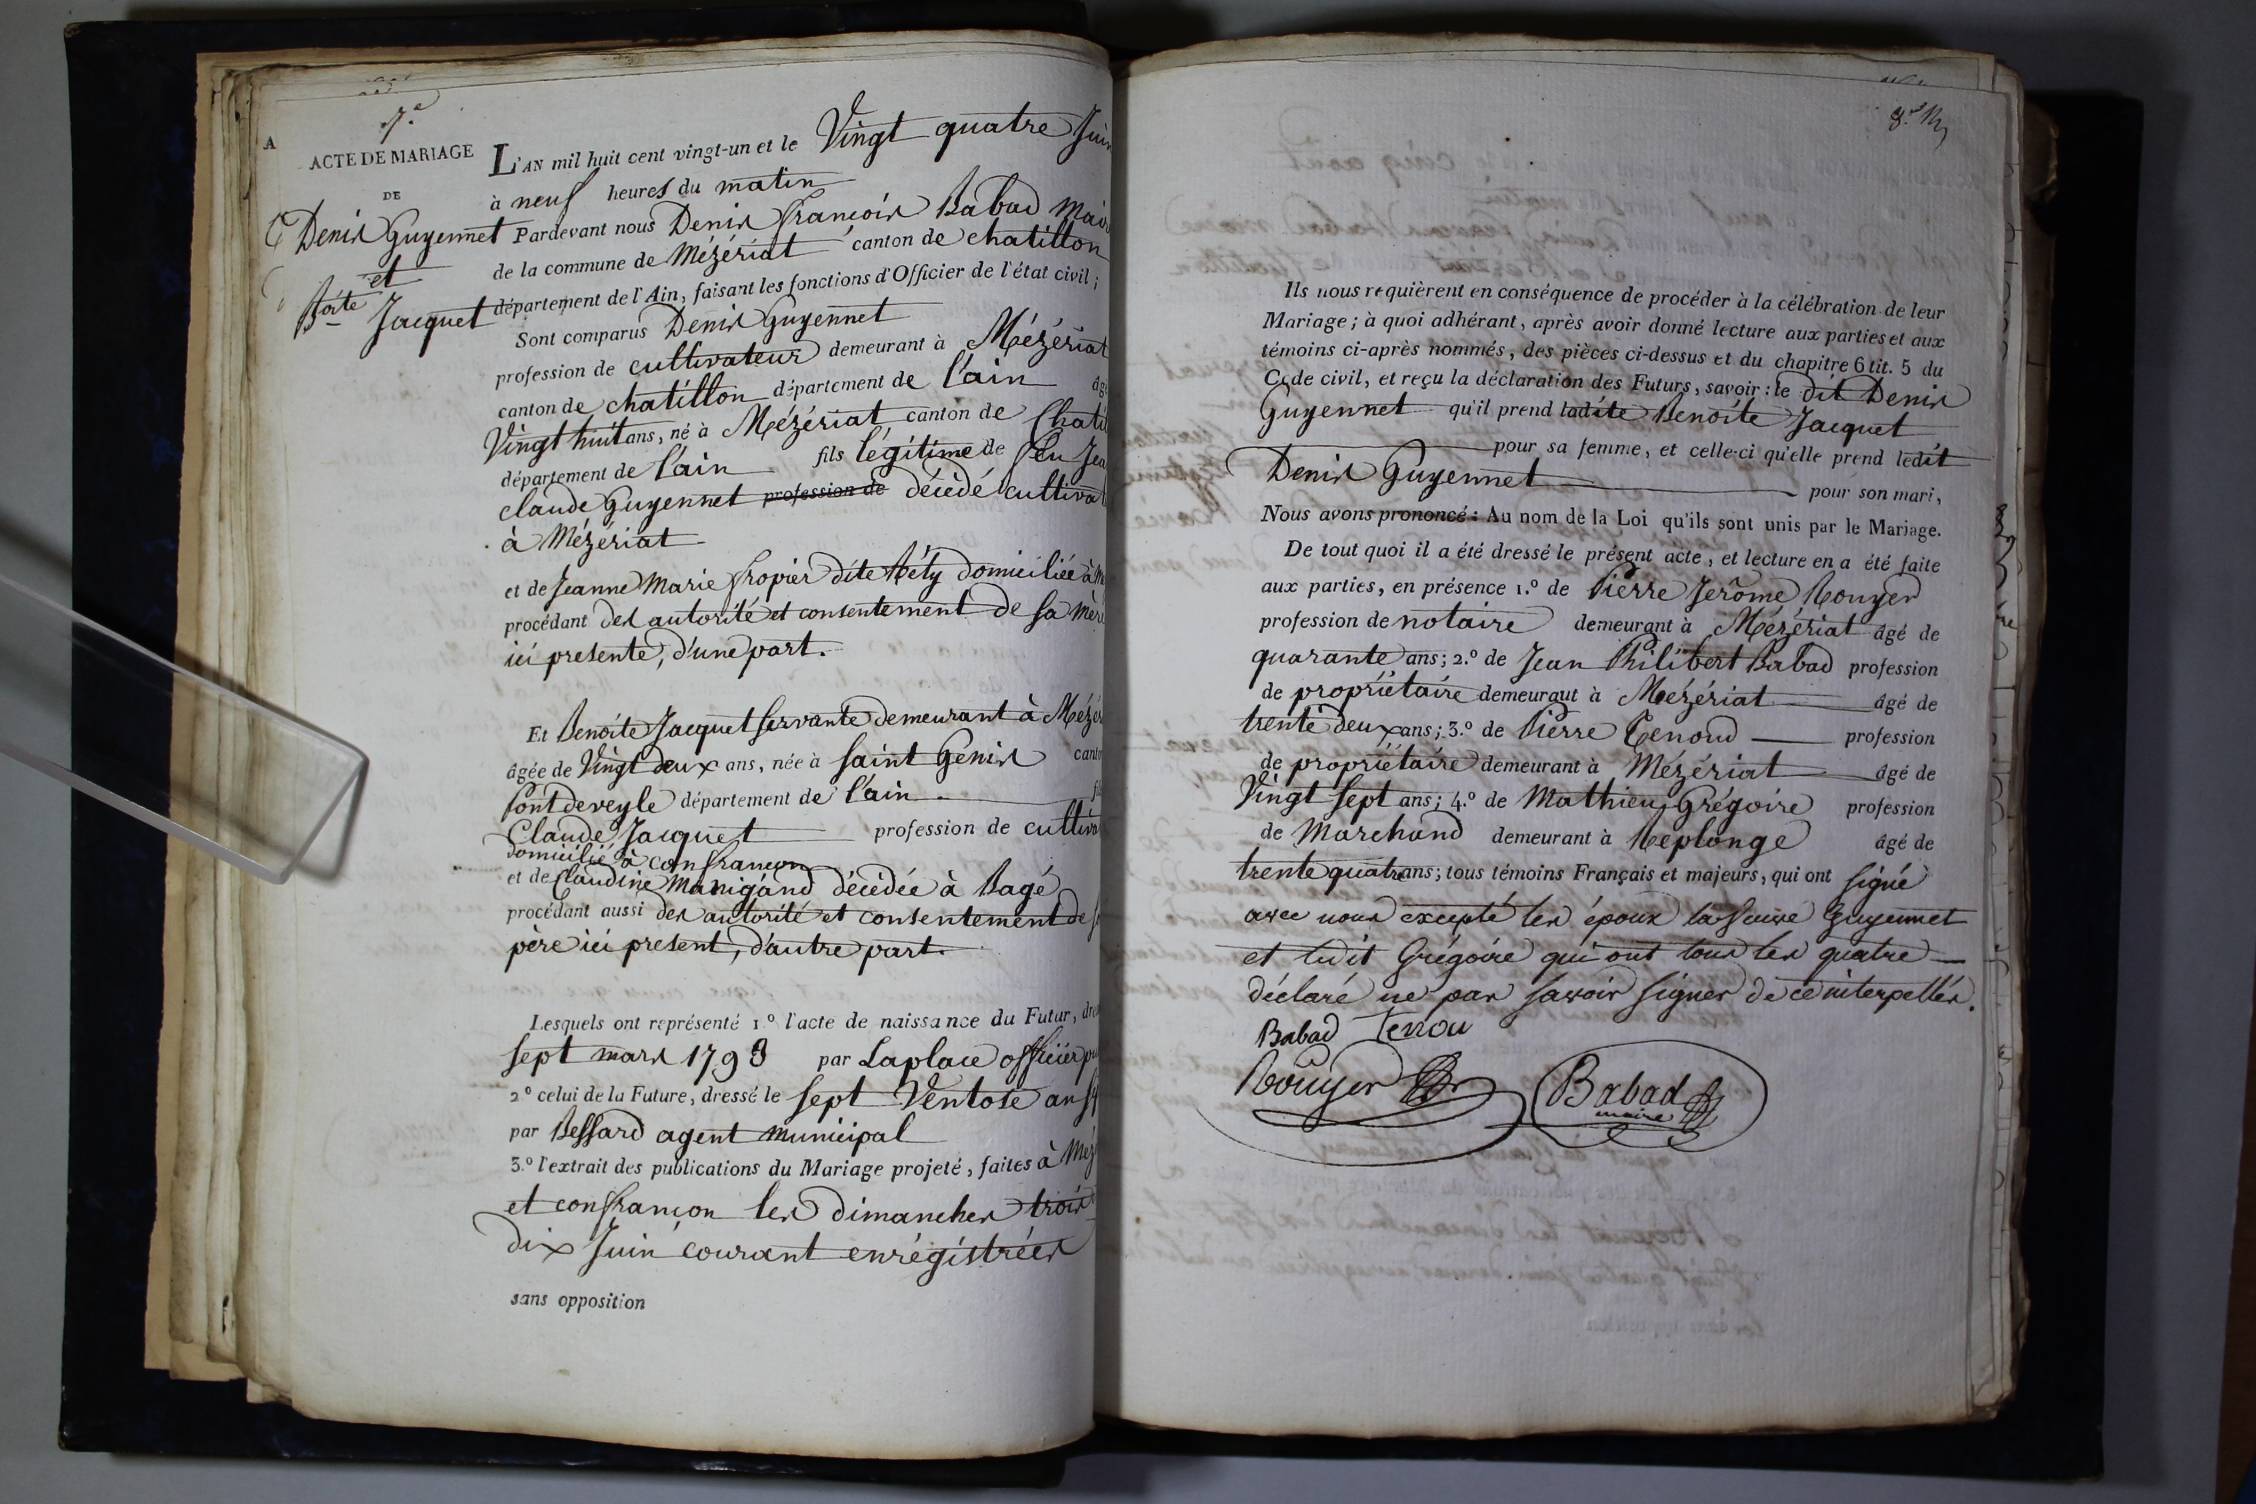 7.e
A
ACTE DE MARIAGE
DE
Denis Guyennet
et
Boîte Jacquet
L'AN mil huit cent vingt-un et le Vingt quatre Juin
à neuf heures du matin
Pardevant nous Denis françois Babad Mair
de la commune de Mézériat canton de chatillon
département de l'Ain, faisant les fonctions d'Officier de l'état civil;
Sont comparus Denis Guyennet
profession de cultivateur demeurant à Mézériat
canton de chatillon département de l'ain âg
Vingt huit ans, né à Mézériat canton de Chatil
département de l'ain fils légitime de feu Jea
claude Guyennet profession de décédé cultivat
à Mézériat
et de Jeanne Marie fropier dite Réty domiciliée à M
procédant des autorité et consentement de sa mère
ici presente, d'une part.
Et Benoite Jacquet servante demeurant à Mézér
âgée de Vingt deux ans, née à saint Genis canto
Pont de veyle département de l'ain. fil
Claude Jacquet profession de cultiva
domicilié à confrançon
et de Claudine Manigand décédée à Bagé
procédant aussi des autorité et consentement de s
père ici present, d'autre part.
Lesquels ont représenté 1.º l'acte de naissance du Futur, dre
sept mars 1793 par Laplace officier pu
2º celui de la Future, dressé le sept Ventose an
par Bessard agent municipal
3.º l'extrait des publications du Mariage projeté, faites à Méz
et confrançon les dimanches trois
dix Juin courant enrégistrées
sans opposition
8.e M
Ils nous requièrent en conséquence de procéder à la célébration de leur
Mariage; à quoi adhérant, après avoir donné lecture aux parties et aux
témoins ci-après nommés, des pièces ci-dessus et du chapitre 6 tit. 5 du
Code civil, et reçu la déclaration des Futurs, savoir: le dit Denis
Guyennet qu'il prend ladite Benoite Jacquet
pour sa femme, et celle-ci qu'elle prend ledit
Denis Guyennet pour son mari,
Nous avons prononcé: Au nom de la Loi qu'ils sont unis par le Mariage.
De tout quoi il a été dressé le présent acte, et lecture en a été faite
aux parties, en présence 1.º de Pierre Jerôme Rouyer
profession de notaire demeurant à Mézériat âgé de
quarante ans; 2.º de Jean Philibert Babad profession
de propriétaire demeurant à Mézériat âgé de
trente deux ans; 3.º de Pierre Tenoud profession
de propriétaire demeurant à Mézériat âgé de
Vingt sept ans; 4.º de Mathieu Grégoire profession
de Marchand demeurant à Replonge âgé de
trente quatre ans; tous témoins Français et majeurs, qui ont signé
avec nous excepté les époux la veuve Guyennet
et ledit Grégoire qui ont tous les quatre
déclaré ne pas savoir signer de ce interpellés.
Babad Tenou
Rouyer Babad
maire